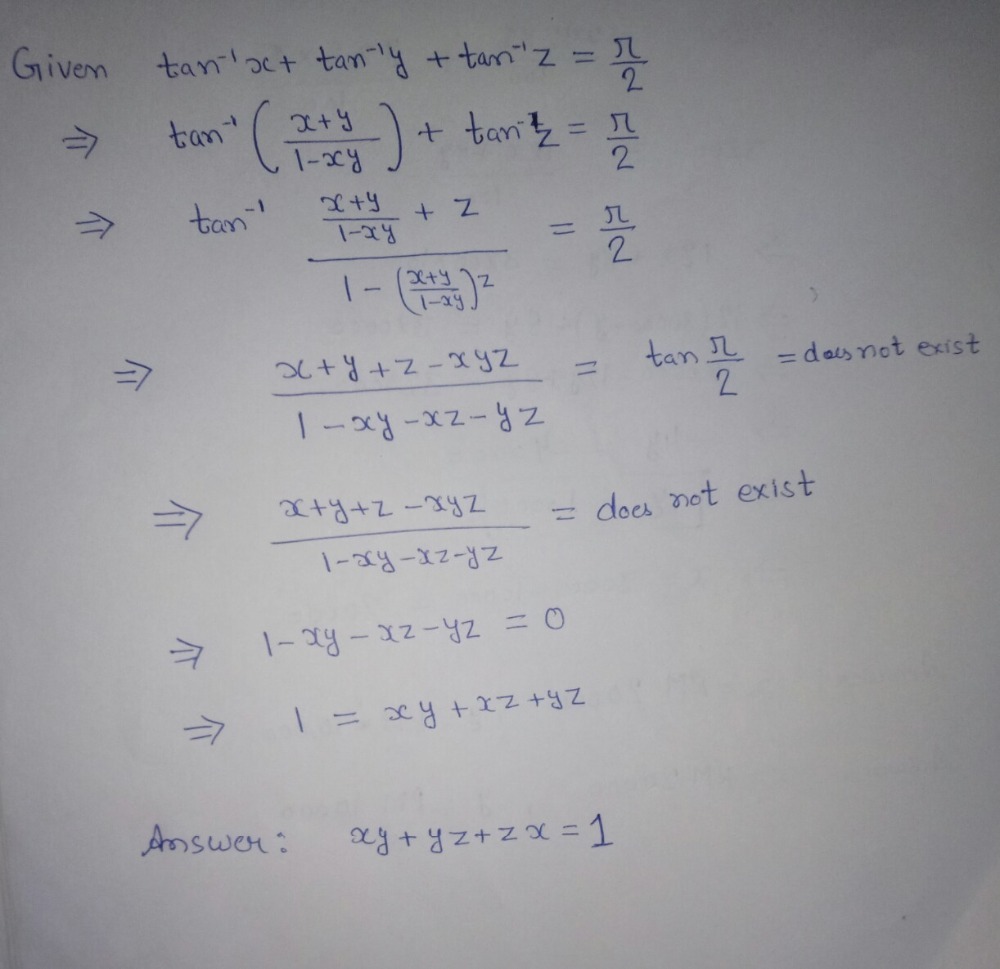 Given tan⁻¹x + tan⁻¹y + tan⁻¹z = π/2
⇒ tan⁻¹ ( (x+y)/(1-xy) ) + tan⁻¹z = π/2
⇒ tan⁻¹ ( (x+y)/(1-xy) + z ) / ( 1 - ((x+y)/(1-xy)) z ) = π/2
⇒ (x+y+z-xyz)/(1-xy-xz-yz) = tan π/2 = does not exist
⇒ (x+y+z-xyz)/(1-xy-xz-yz) = does not exist
⇒ 1-xy-xz-yz = 0
⇒ 1 = xy+xz+yz
Answer: xy+yz+zx=1